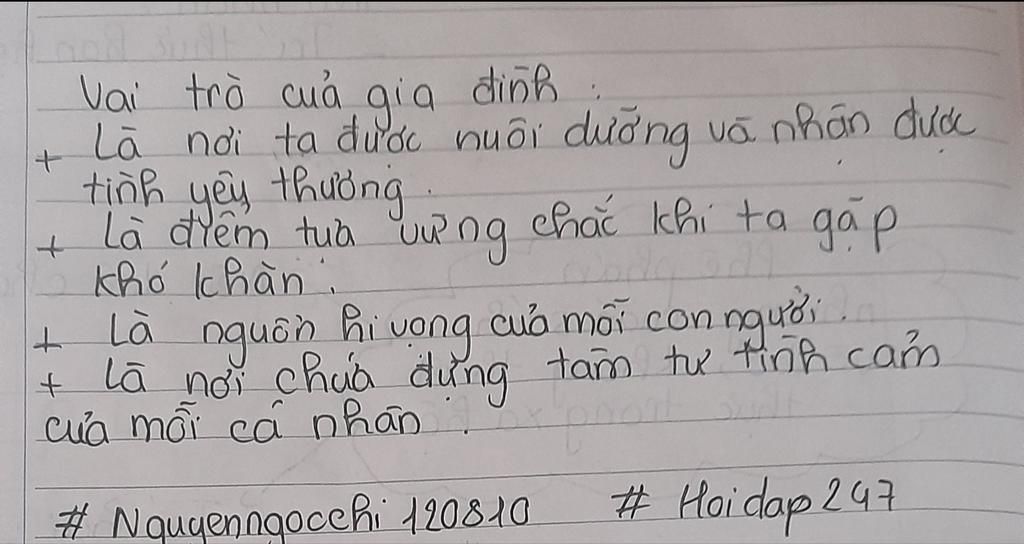 Vai trò của gia đình :
+ Là nơi ta được nuôi dưỡng và nhận được
tình yêu thương.
+ Là điểm tựa vững chắc khi ta gặp
khó khăn.
+ Là nguồn hi vọng của mỗi con người.
+ Là nơi chứa đựng tâm tư tình cảm
của mỗi cá nhân.
# Nguyenngocchi 120810 # Hoidap 247